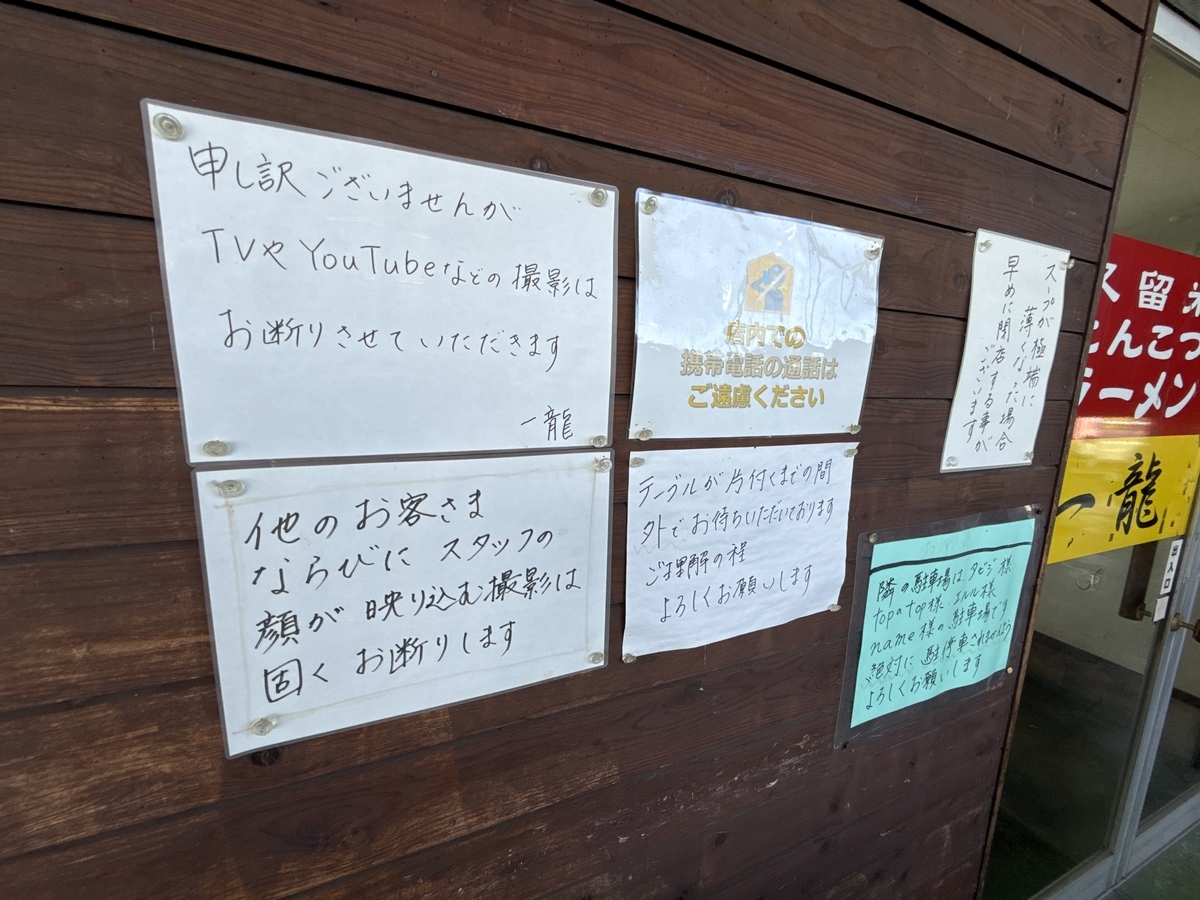 申し訳ございませんが
TVやYouTubeなどの撮影は
お断りさせていただきます
一龍
他のお客さま
ならびに スタッフの
顔が 映り込む撮影は
固く お断りします
店内での
携帯電話の通話は
ご遠慮ください
テーブルが片付くまでの間
外で お待ちいただいております
ご理解の程
よろしくお願いします
スープが極端に
薄くなった場合
早めに閉店する事が
ございます
隣の駐車場は タビジ様
topのtop様 エルル様
name様の 駐車場です
絶対に 駐停車されませんよう
よろしくお願いします
久留米
とんこつ
ラーメン
一龍
出入口